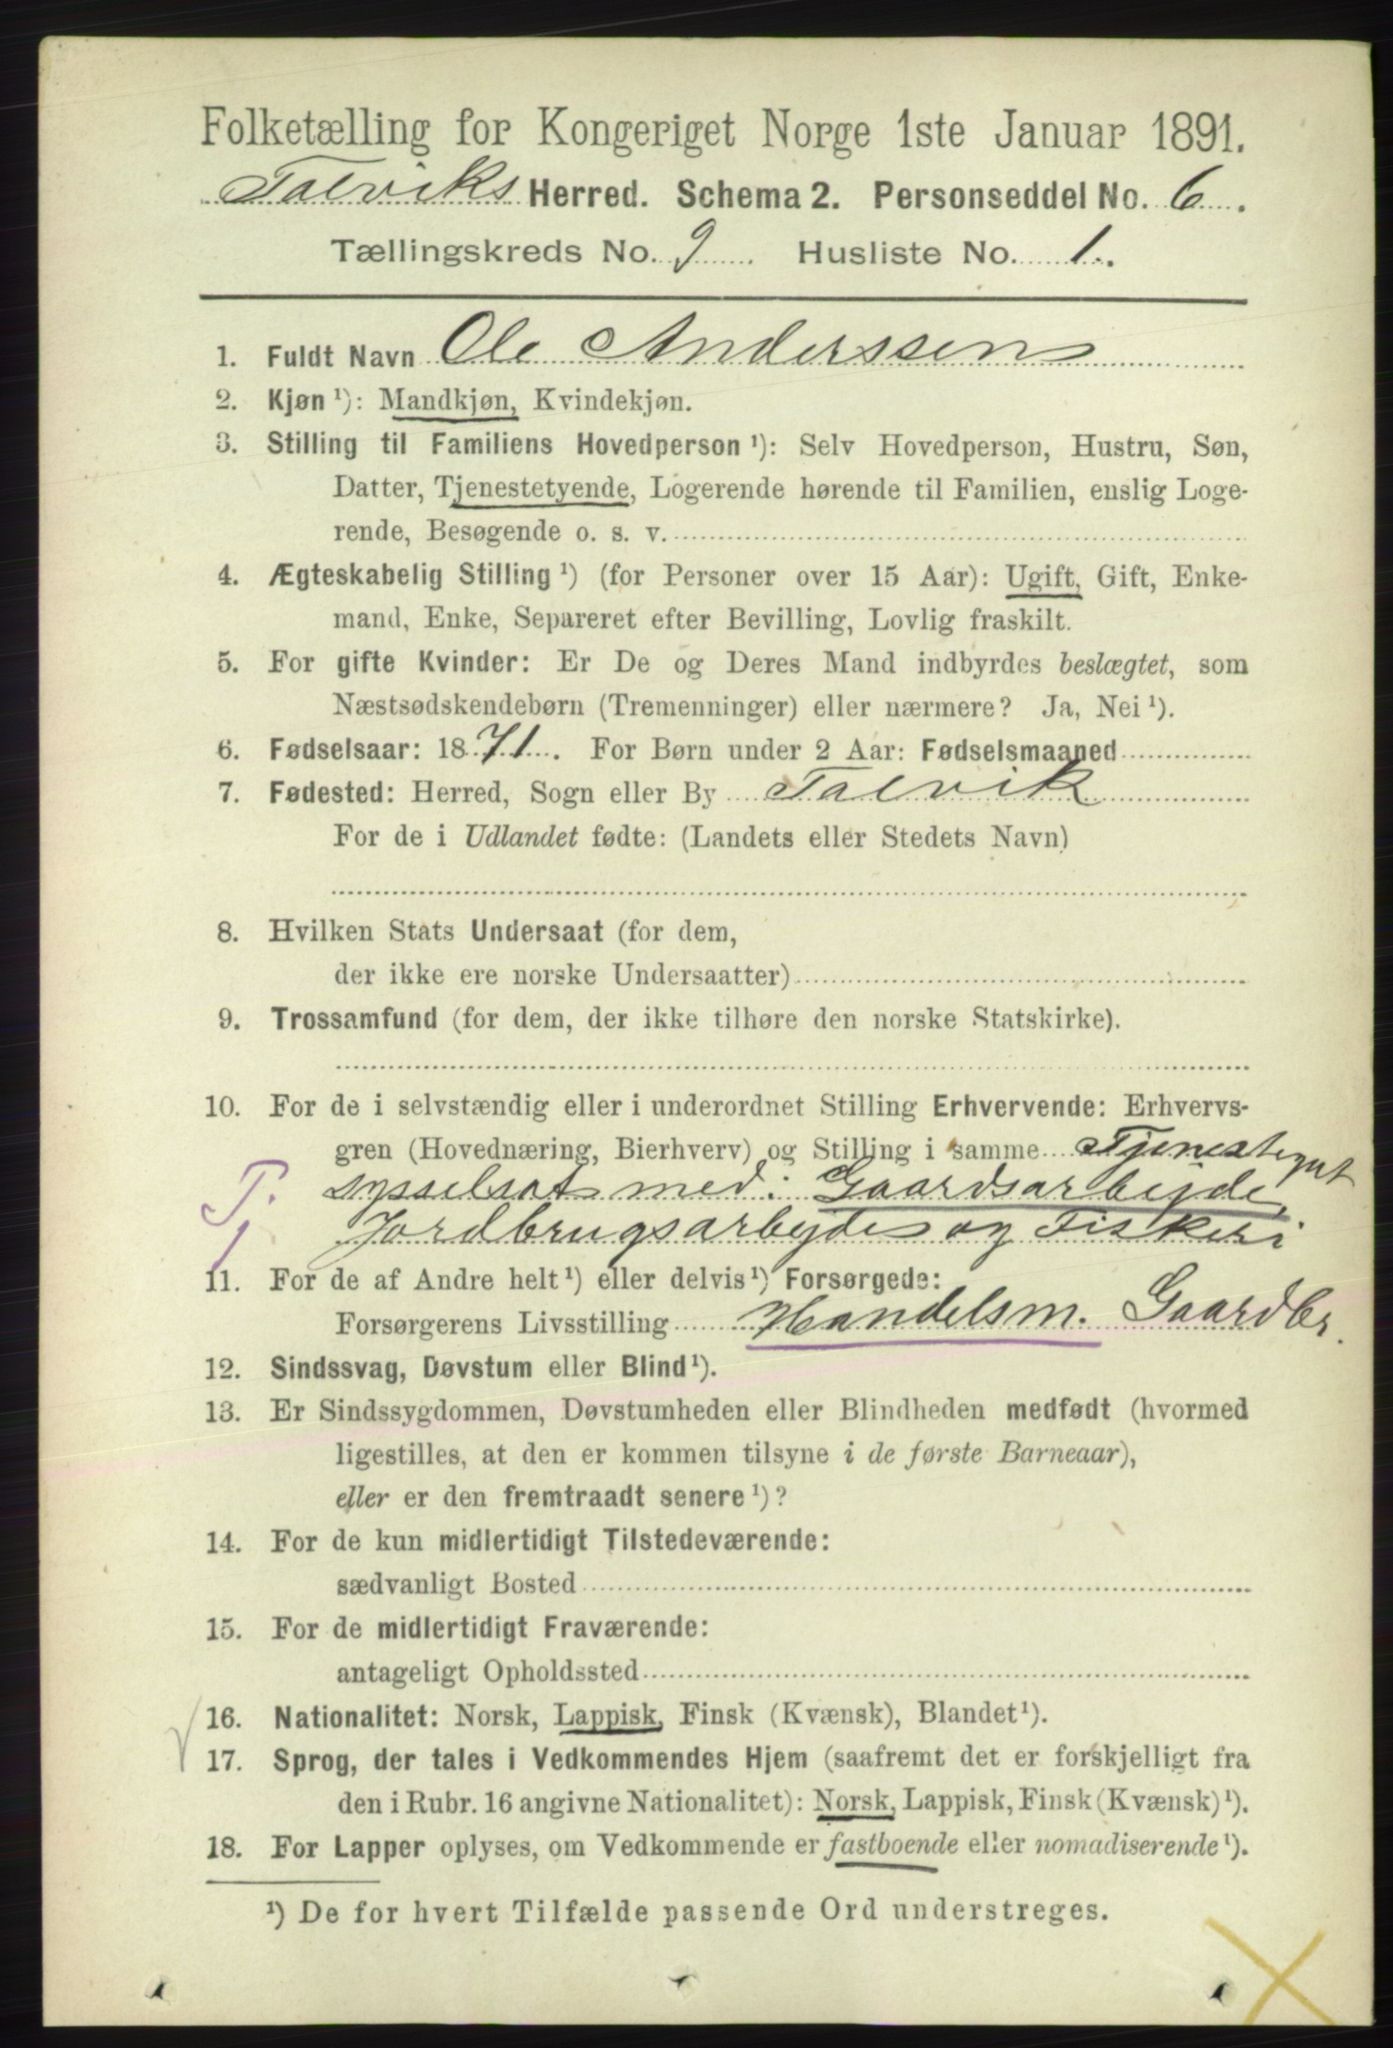 Folketælling for Kongeriget Norge 1ste Januar 1891.
Talviks Herred. Schema 2. Personseddel No. 6.
Tællingskreds No. 9 Husliste No. 1.
1. Fuldt Navn Ole Anderssen
2. Kjøn ¹): Mandkjøn, Kvindekjøn.
3. Stilling til Familiens Hovedperson ¹): Selv Hovedperson, Hustru, Søn,
Datter, Tjenestetyende, Logerende hørende til Familien, enslig Loge-
rende, Besøgende o. s. v.
4. Ægteskabelig Stilling ¹) (for Personer over 15 Aar): Ugift, Gift, Enke-
mand, Enke, Separeret efter Bevilling, Lovlig fraskilt.
5. For gifte Kvinder: Er De og Deres Mand indbyrdes beslægtet, som
Næstsødskendebørn (Tremenninger) eller nærmere? Ja, Nei ¹).
6. Fødselsaar: 1871. For Børn under 2 Aar: Fødselsmaaned
7. Fødested: Herred, Sogn eller By Talvik
For de i Udlandet fødte: (Landets eller Stedets Navn)
8. Hvilken Stats Undersaat (for dem,
der ikke ere norske Undersaatter)
9. Trossamfund (for dem, der ikke tilhøre den norske Statskirke).
10. For de i selvstændig eller i underordnet Stilling Erhvervende: Erhvervs-
gren (Hovednæring, Bierhverv) og Stilling i samme Tjenestegut
Tj sysselsat med: Gaardsarbejde,
Jordbrugsarbejde og Fiskeri
11. For de af Andre helt ¹) eller delvis ¹) Forsørgede:
Forsørgerens Livsstilling Handelsm. Gaardbr.
12. Sindssvag, Døvstum eller Blind ¹).
13. Er Sindssygdommen, Døvstumheden eller Blindheden medfødt (hvormed
ligestilles, at den er kommen tilsyne i de første Barneaar),
eller er den fremtraadt senere ¹)?
14. For de kun midlertidigt Tilstedeværende:
sædvanligt Bosted
15. For de midlertidigt Fraværende:
antageligt Opholdssted
16. Nationalitet: Norsk, Lappisk, Finsk (Kvænsk), Blandet ¹).
17. Sprog, der tales i Vedkommendes Hjem (saafremt det er forskjelligt fra
den i Rubr. 16 angivne Nationalitet): Norsk, Lappisk, Finsk (Kvænsk) ¹).
18. For Lapper oplyses, om Vedkommende er fastboende eller nomadiserende ¹).
¹) De for hvert Tilfælde passende Ord understreges.